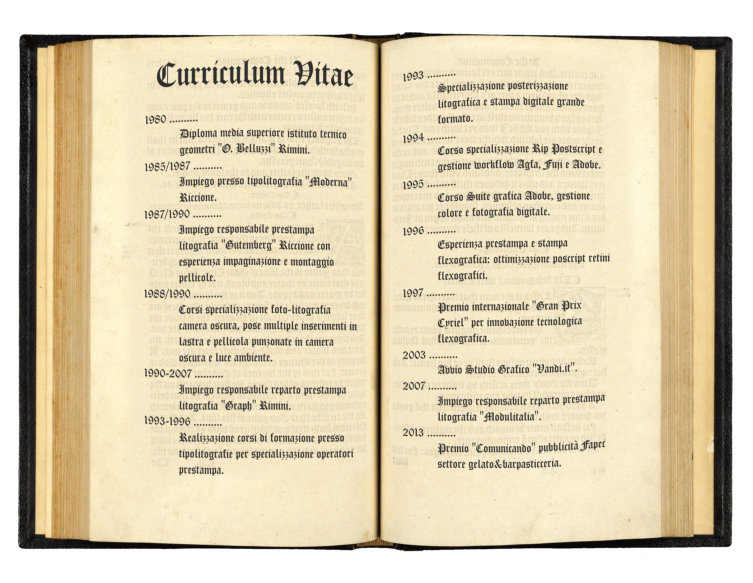 Curriculum Vitae
1980 ..........
Diploma media superiore istituto tecnico
geometri "O. Belluzzi" Rimini.
1985/1987 ..........
Impiego presso tipolitografia "Moderna"
Riccione.
1987/1990 ..........
Impiego responsabile prestampa
litografia "Gutemberg" Riccione con
esperienza impaginazione e montaggio
pellicole.
1988/1990 ..........
Corsi specializzazione foto-litografia
camera oscura, pose multiple inserimenti in
lastra e pellicola punzonate in camera
oscura e luce ambiente.
1990-2007 ..........
Impiego responsabile reparto prestampa
litografia "Graph" Rimini.
1993-1996 ..........
Realizzazione corsi di formazione presso
tipolitografie per specializzazione operatori
prestampa.
1993 ..........
Specializzazione posterizzazione
litografica e stampa digitale grande
formato.
1994 ..........
Corso specializzazione Rip Postscript e
gestione workflow Agfa, Fuji e Adobe.
1995 ..........
Corso Suite grafica Adobe, gestione
colore e fotografia digitale.
1996 ..........
Esperienza prestampa e stampa
flexografica: ottimizzazione poscript retini
flexografici.
1997 ..........
Premio internazionale "Gran Prix
Cyriel" per innovazione tecnologica
flexografica.
2003 ..........
Avvio Studio Grafico "Vandi.it".
2007 ..........
Impiego responsabile reparto prestampa
litografia "Modulitalia".
2013 ..........
Premio "Comunicando" pubblicità Fapec
settore gelato&barpasticceria.